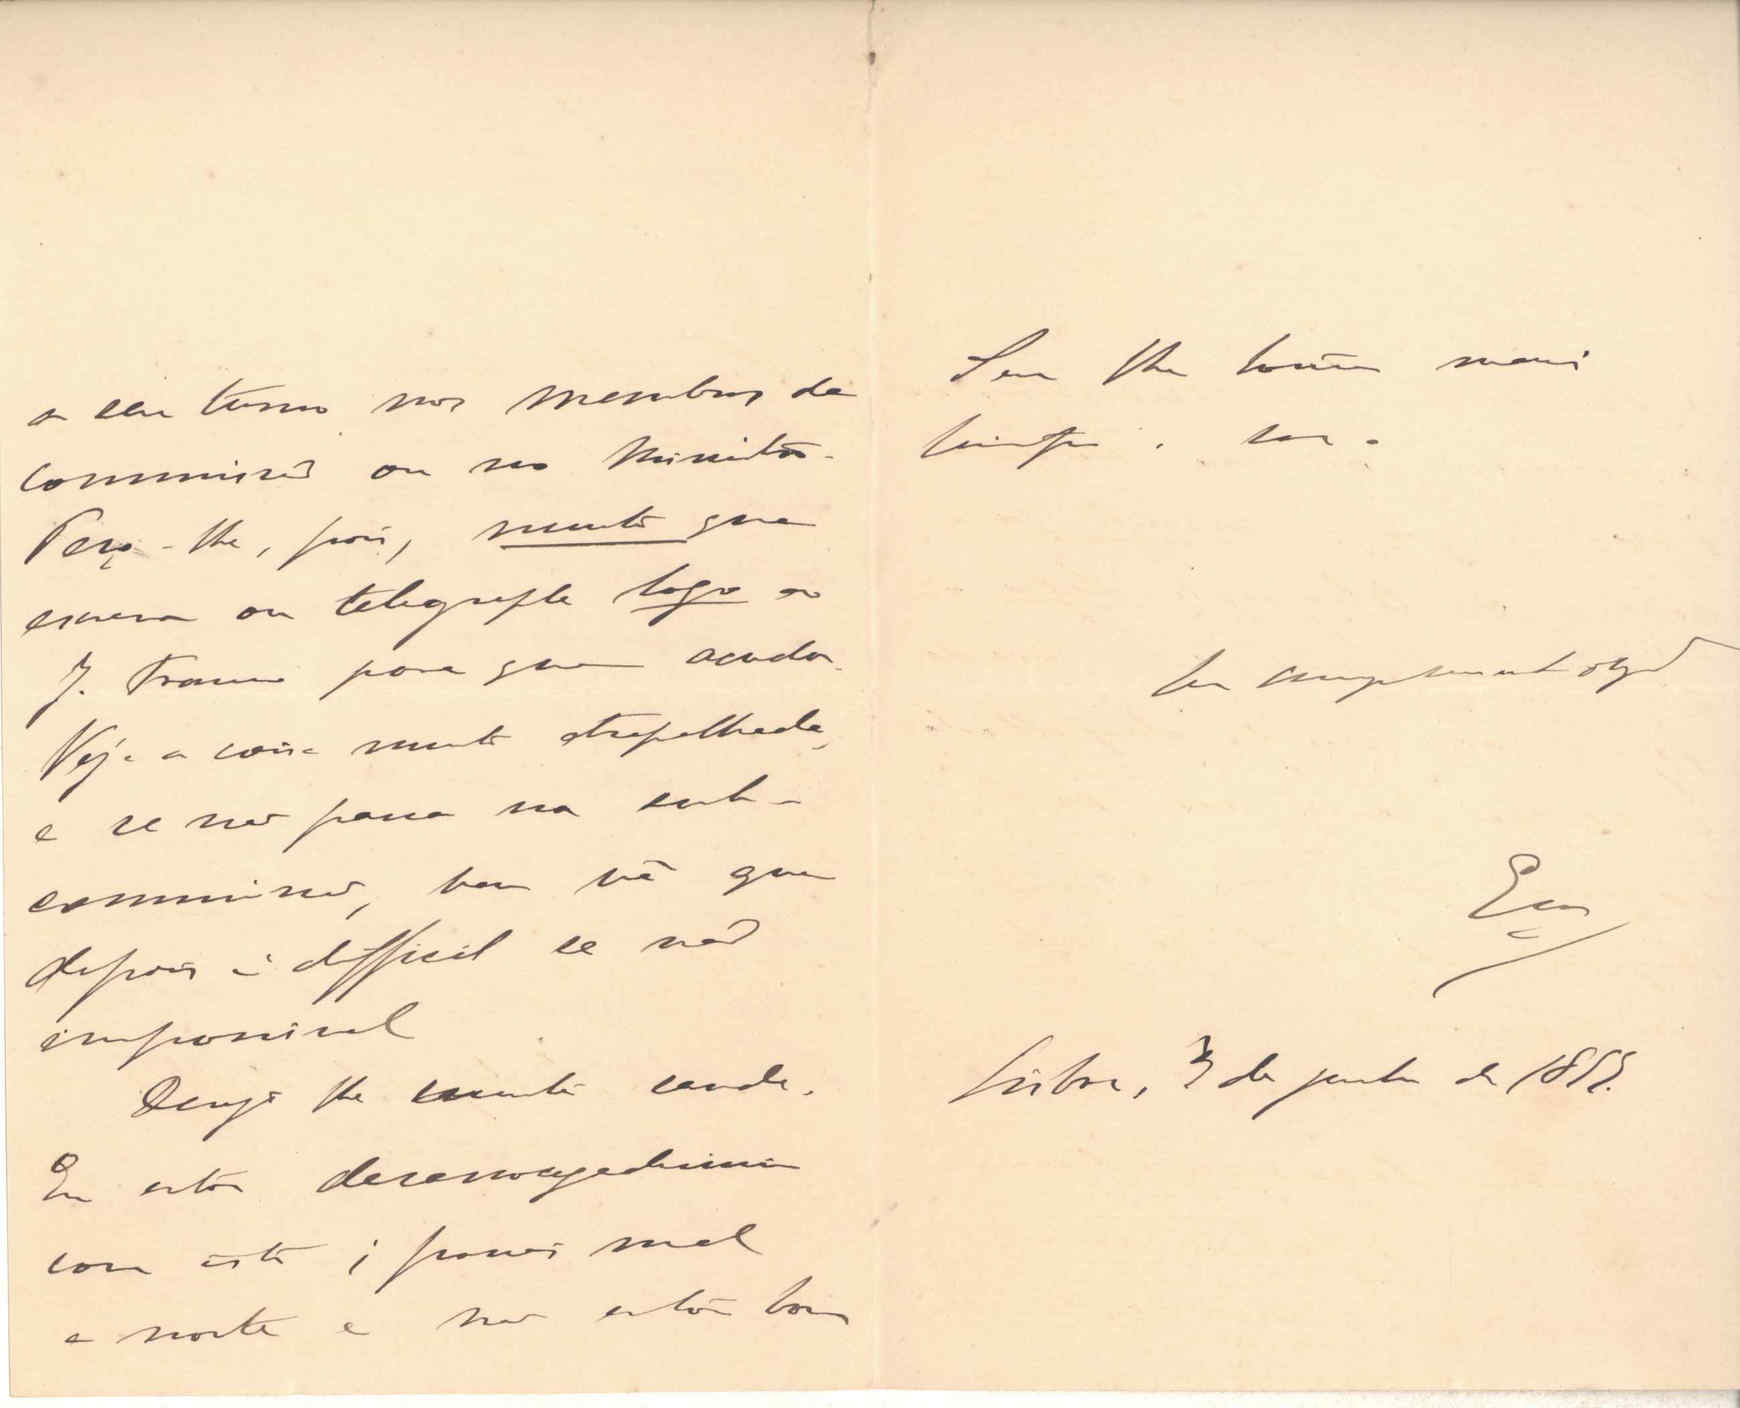 a seu turno nos membros da
commissão ou no Ministro.
Peço-lhe, pois, muito que
escreva ou telegraphe logo ao
J. Franco para que acuda.
Vejo a coisa muito atrapalhada,
e se não passa na sub-
commissão, bem vê que
depois é difficil se não
impossivel
Desejo lhe muita saude.
Eu estou
com isto; passei mal
a noite e não estou bom
Sem lhe tomar mais
tempo, sou.
Seu
Lisboa, 3 de junho de